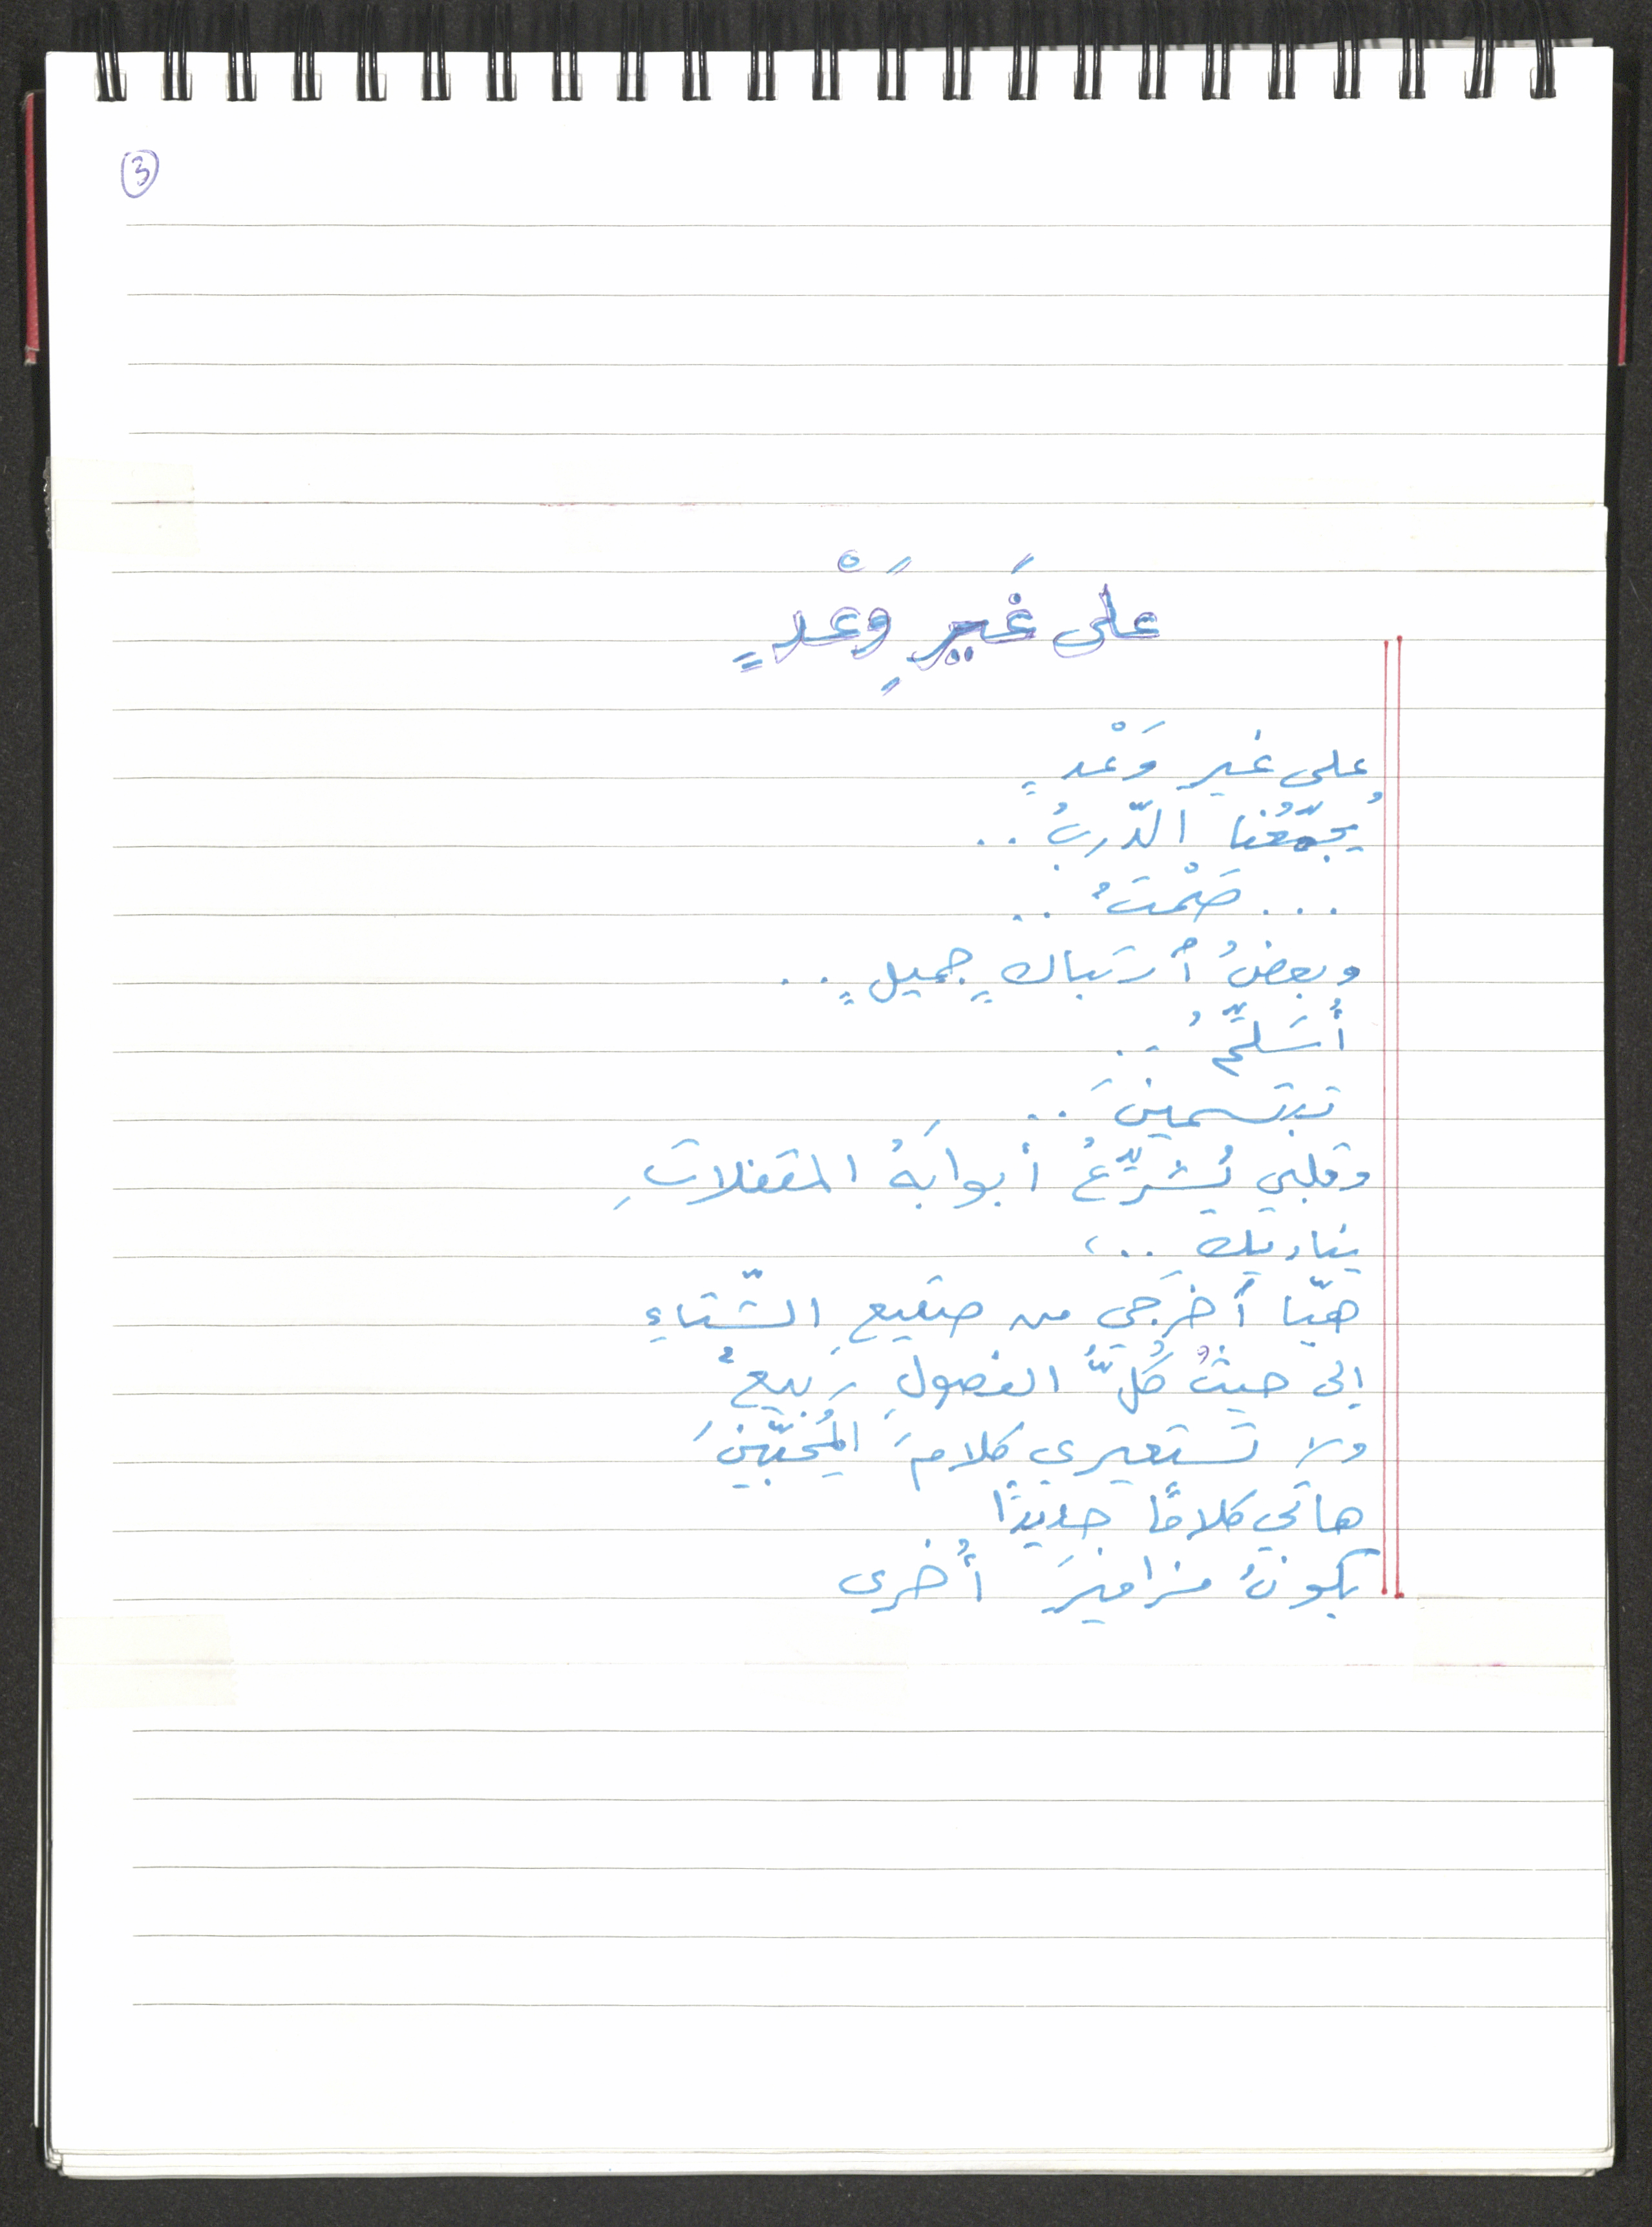 3
على غَيرِ وَعْدٍ
على غير وَعْدٍ
يُجمِّعُنا الدّربُ ..
... صَمْتٌ ..
وبعضُ ٱرتباكٍ جميلٍ ..
أُسَلِّمُ ..
تبتسمينَ ..
وقلبي يُشرِّعُ أبوابَهُ المقفلاتِ
يناديكِ ..،
هيّا ٱخرَجي من صقيعِ الشّتاءِ
إلى حيثُ كُلُّ الفصولِ رَبيعٌ
ولا تَستعيري كلامَ المُحبّينَ
هاتي كلامًا جديدًا
يكونُ مزاميرَ أُخرى